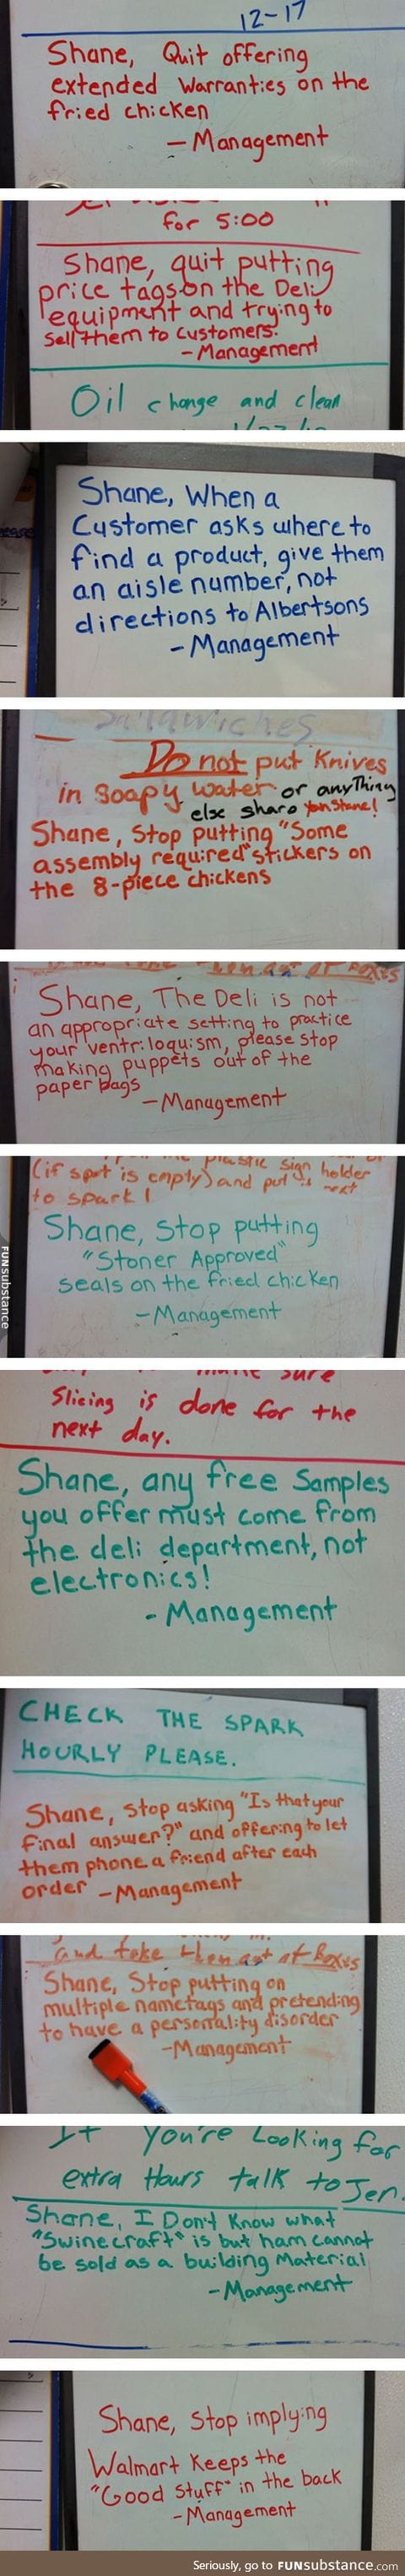 12-17
Shane, Quit offering
extended Warranties on the
fried chicken
- Management
for 5:00
Shane, quit putting
price tags on the Deli
equipment and trying to
sell them to customers.
- Management
Oil change and clean
Shane, When a
Customer asks where to
find a product, give them
an aisle number, not
directions to Albertsons
- Management
Sandwiches
Do not put Knives
in soapy water or anything
else sharp Yea Shane!
Shane, Stop putting "Some
assembly required" stickers on
the 8-piece chickens
Shane, The Deli is not
an appropriate setting to practice
your ventriloquism, please stop
making puppets out of the
paper bags
- Management
plastic sign holder
(if spot is empty) and put it next
to spark!
Shane, Stop putting
"Stoner Approved"
seals on the fried chicken
- Management
FUNsubstance
make sure
Slicing is done for the
next day.
Shane, any free Samples
you offer must come from
the deli department, not
electronics!
- Management
CHECK THE SPARK
HOURLY PLEASE.
Shane, Stop asking "Is that your
final answer?" and offering to let
them phone a friend after each
order - Management
and take them out of Boxes
Shane, Stop putting on
multiple nametags and pretending
to have a personality disorder
- Management
If You're Looking for
extra Hours talk to Jen.
Shane, I Don't Know what
"Swinecraft" is but ham cannot
be sold as a building Material
- Management
Shane, Stop implying
Walmart Keeps the
"Good Stuff" in the back
- Management
Seriously, go to FUNsubstance.com